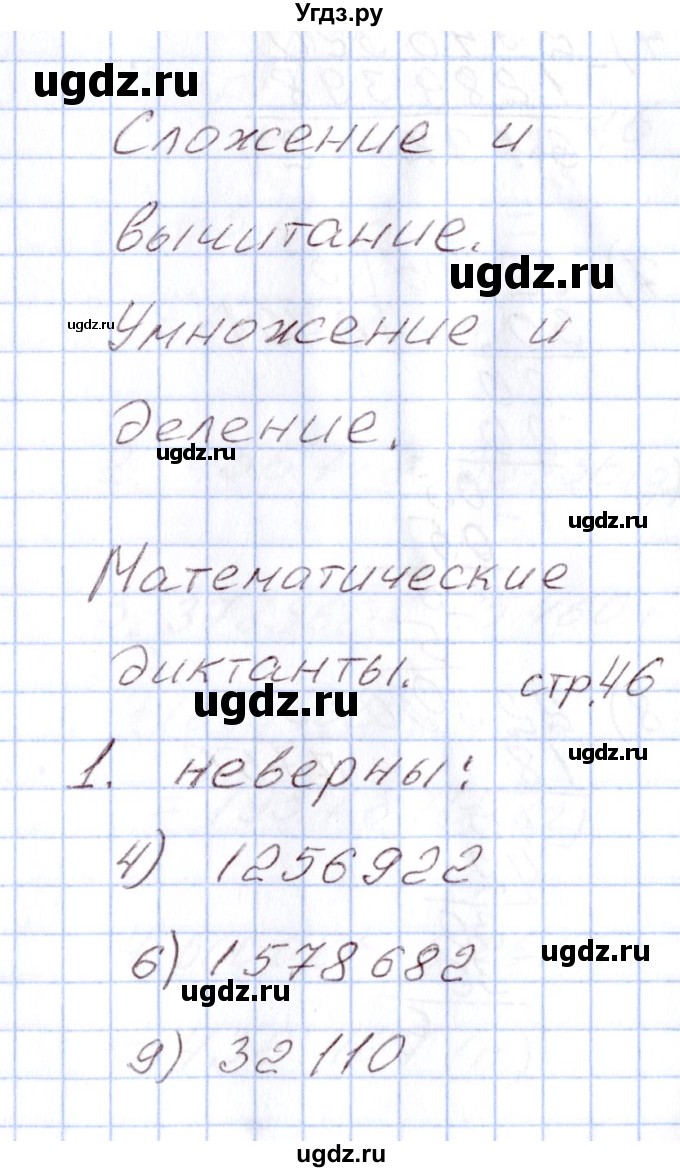 Угдз.ру
ugdz.ru
Сложение и
вычитание.
ugdz.ru
ugdz.ru
Умножение и
деление.
ugdz.ru
ugdz.ru
Математические
диктанты. стр.46
ugdz.ru
ugdz.ru
1. неверны:
4) 1256922
6) 1578682
ugdz.ru
ugdz.ru
9) 32110
ugdz.ru